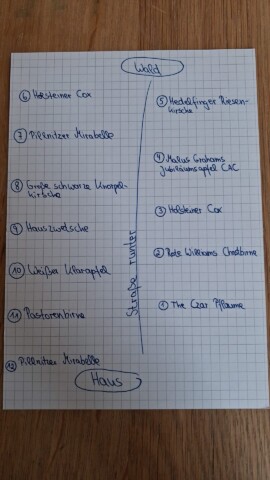 Wald
⑥ Holsteiner Cox
⑦ Pillnitzer Mirabelle
⑧ Große schwarze Knorpel-
kirsche
⑨ Hauszwetsche
⑩ Weißer Klarapfel
⑪ Pastorenbirne
⑫ Pillnitzer Mirabelle
Straße runter
⑤ Hedelfinger Riesen-
kirsche
④ Malus Grahams
Jubiläumsapfel CAC
③ Holsteiner Cox
② Rote Williams Christbirne
① The Czar Pflaume
Haus